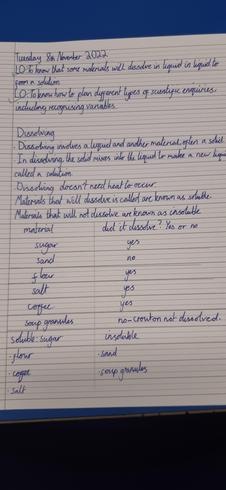 Tuesday 8th November 2022
LO: To know that some materials will dissolve in liquid in liquid to
form a solution.
LO: To know how to plan different types of scientific enquiries,
including recognising variables.
Dissolving
· Dissolving involves a liquid and another material, often a solid.
· In dissolving, the solid mixes into the liquid to make a new liquid
called a solution.
· Dissolving doesn't need heat to occur.
Materials that will dissolve is called are known as soluble.
Materials that will not dissolve are known as insoluble.
material did it dissolve? Yes or no
sugar yes
sand no
flour yes
salt yes
coffee yes
soup granules no-crouton not dissolved.
soluble: sugar insoluble
· flour · sand
· coffee · soup granules
· salt